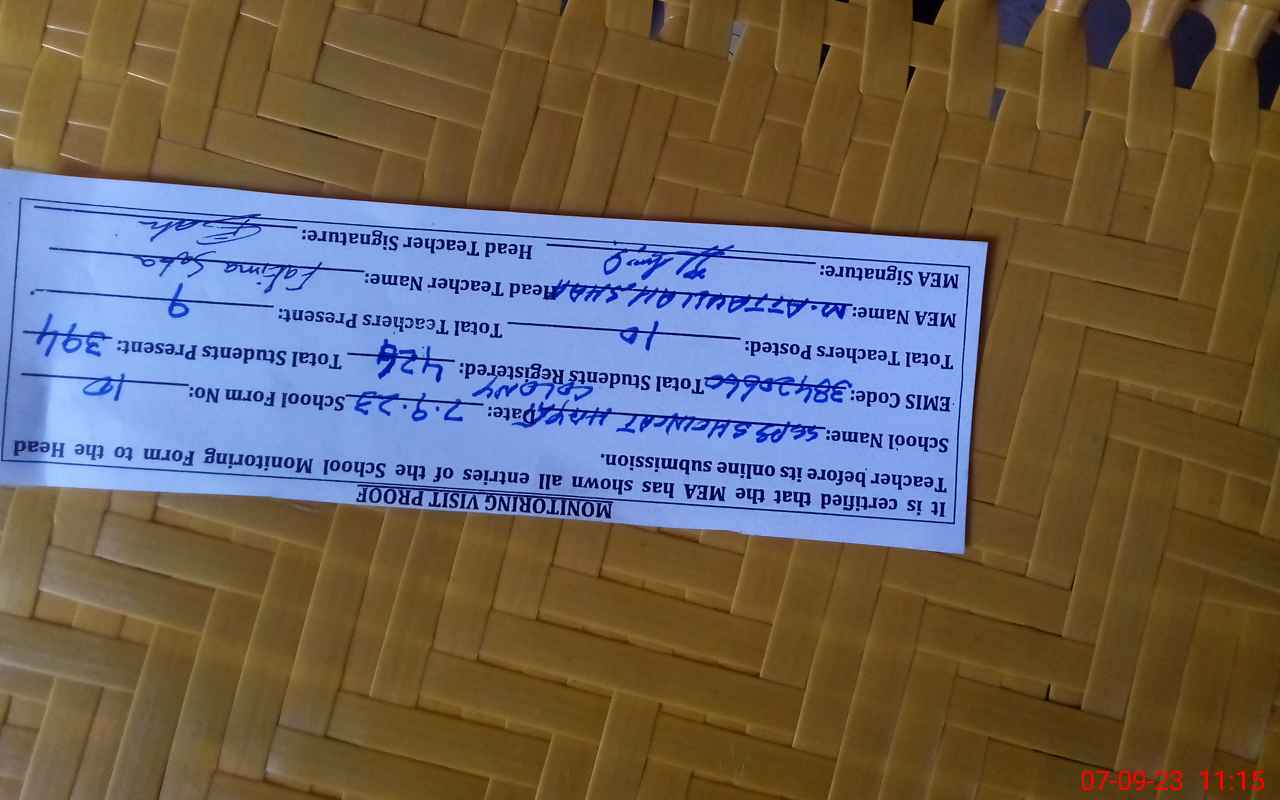 MONITORING VISIT PROOF
It is certified that the MEA has shown all entries of the School Monitoring Form to the Head
Teacher before its online submission.
School Name: HAYAT COLONY Date: 7.9.23 School Form No: 10
EMIS Code: Total Students Registered: 426 Total Students Present: 394
Total Teachers Posted: 10 Total Teachers Present: 9
MEA Name: M. ATTAULLAH SHAH Head Teacher Name: Fatima Saba
MEA Signature: Head Teacher Signature:
07-09-23 11:15